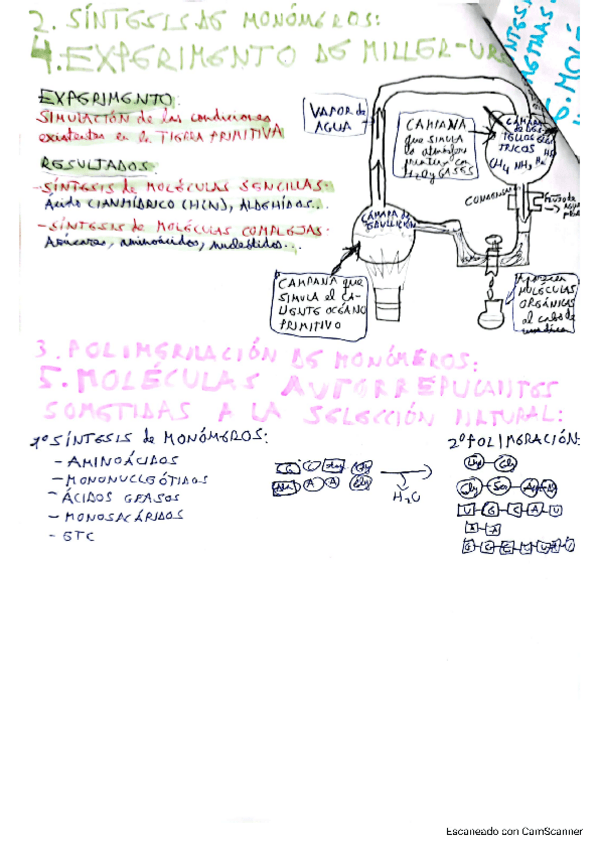 2. SÍNTESIS DE MONÓMEROS:
4. EXPERIMENTO DE MILLER-UREY
EXPERIMENTO:
SIMULACIÓN de las condiciones
existentes en la TIERRA PRIMITIVA
RESULTADOS:
-SÍNTESIS DE MOLÉCULAS SENCILLAS:
Ácido CIANHÍDRICO (HCN), ALDEHÍDOS...
-SÍNTESIS DE MOLÉCULAS COMPLEJAS:
Azúcares, aminoácidos, nucleótidos...
VAPOR DE
AGUA
CAMPANA
que simula
la atmósfera
primitiva con
H2O y GASES
CÁMARA
de DES-
TELLOS ELÉC-
TRICOS
CH4 NH3 H2
CÁMARA DE
EBULLICIÓN
CAMPANA que
SIMULA el CA-
LIENTE OCÉANO
PRIMITIVO
Aparecen
MOLÉCULAS
ORGÁNICAS
al cabo de
3. POLIMERIZACIÓN DE MONÓMEROS:
5. MOLÉCULAS AUTORREPLICANTES
SOMETIDAS A LA SELECCIÓN NATURAL:
1º SÍNTESIS de MONÓMEROS:
- AMINOÁCIDOS
- MONONUCLEÓTIDOS
- ÁCIDOS GRASOS
- MONOSACÁRIDOS
- ETC
H2O
2º POLIMERACIÓN:
Gly
U G C A U
A A
Escaneado con CamScanner